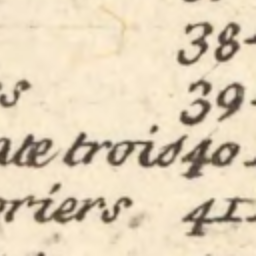 38
s 39
ate trois 40
oriers 41